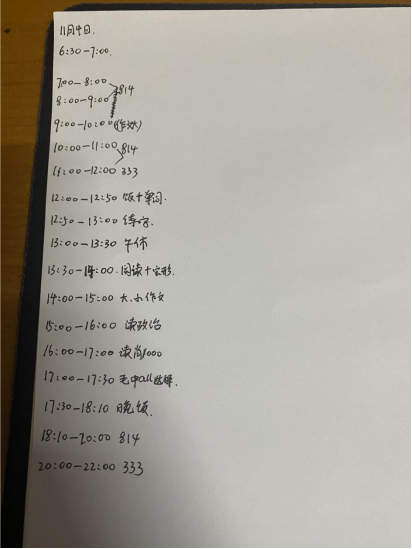 11月4日.
6:30-7:00.
7:00-8:00
814
8:00-9:00
9:00-10:00(作业)
10:00-11:00
814
11:00-12:00 333
12:00-12:50 饭+单词.
12:50-13:00 练字.
13:00-13:30 午休
13:30-14:00.阅读+完形.
14:00-15:00 大.小作文
15:00-16:00 读政治
16:00-17:00 读肖1000
17:00-17:30 毛中all选择.
17:30-18:10 晚饭.
18:10-20:00 814
20:00-22:00 333